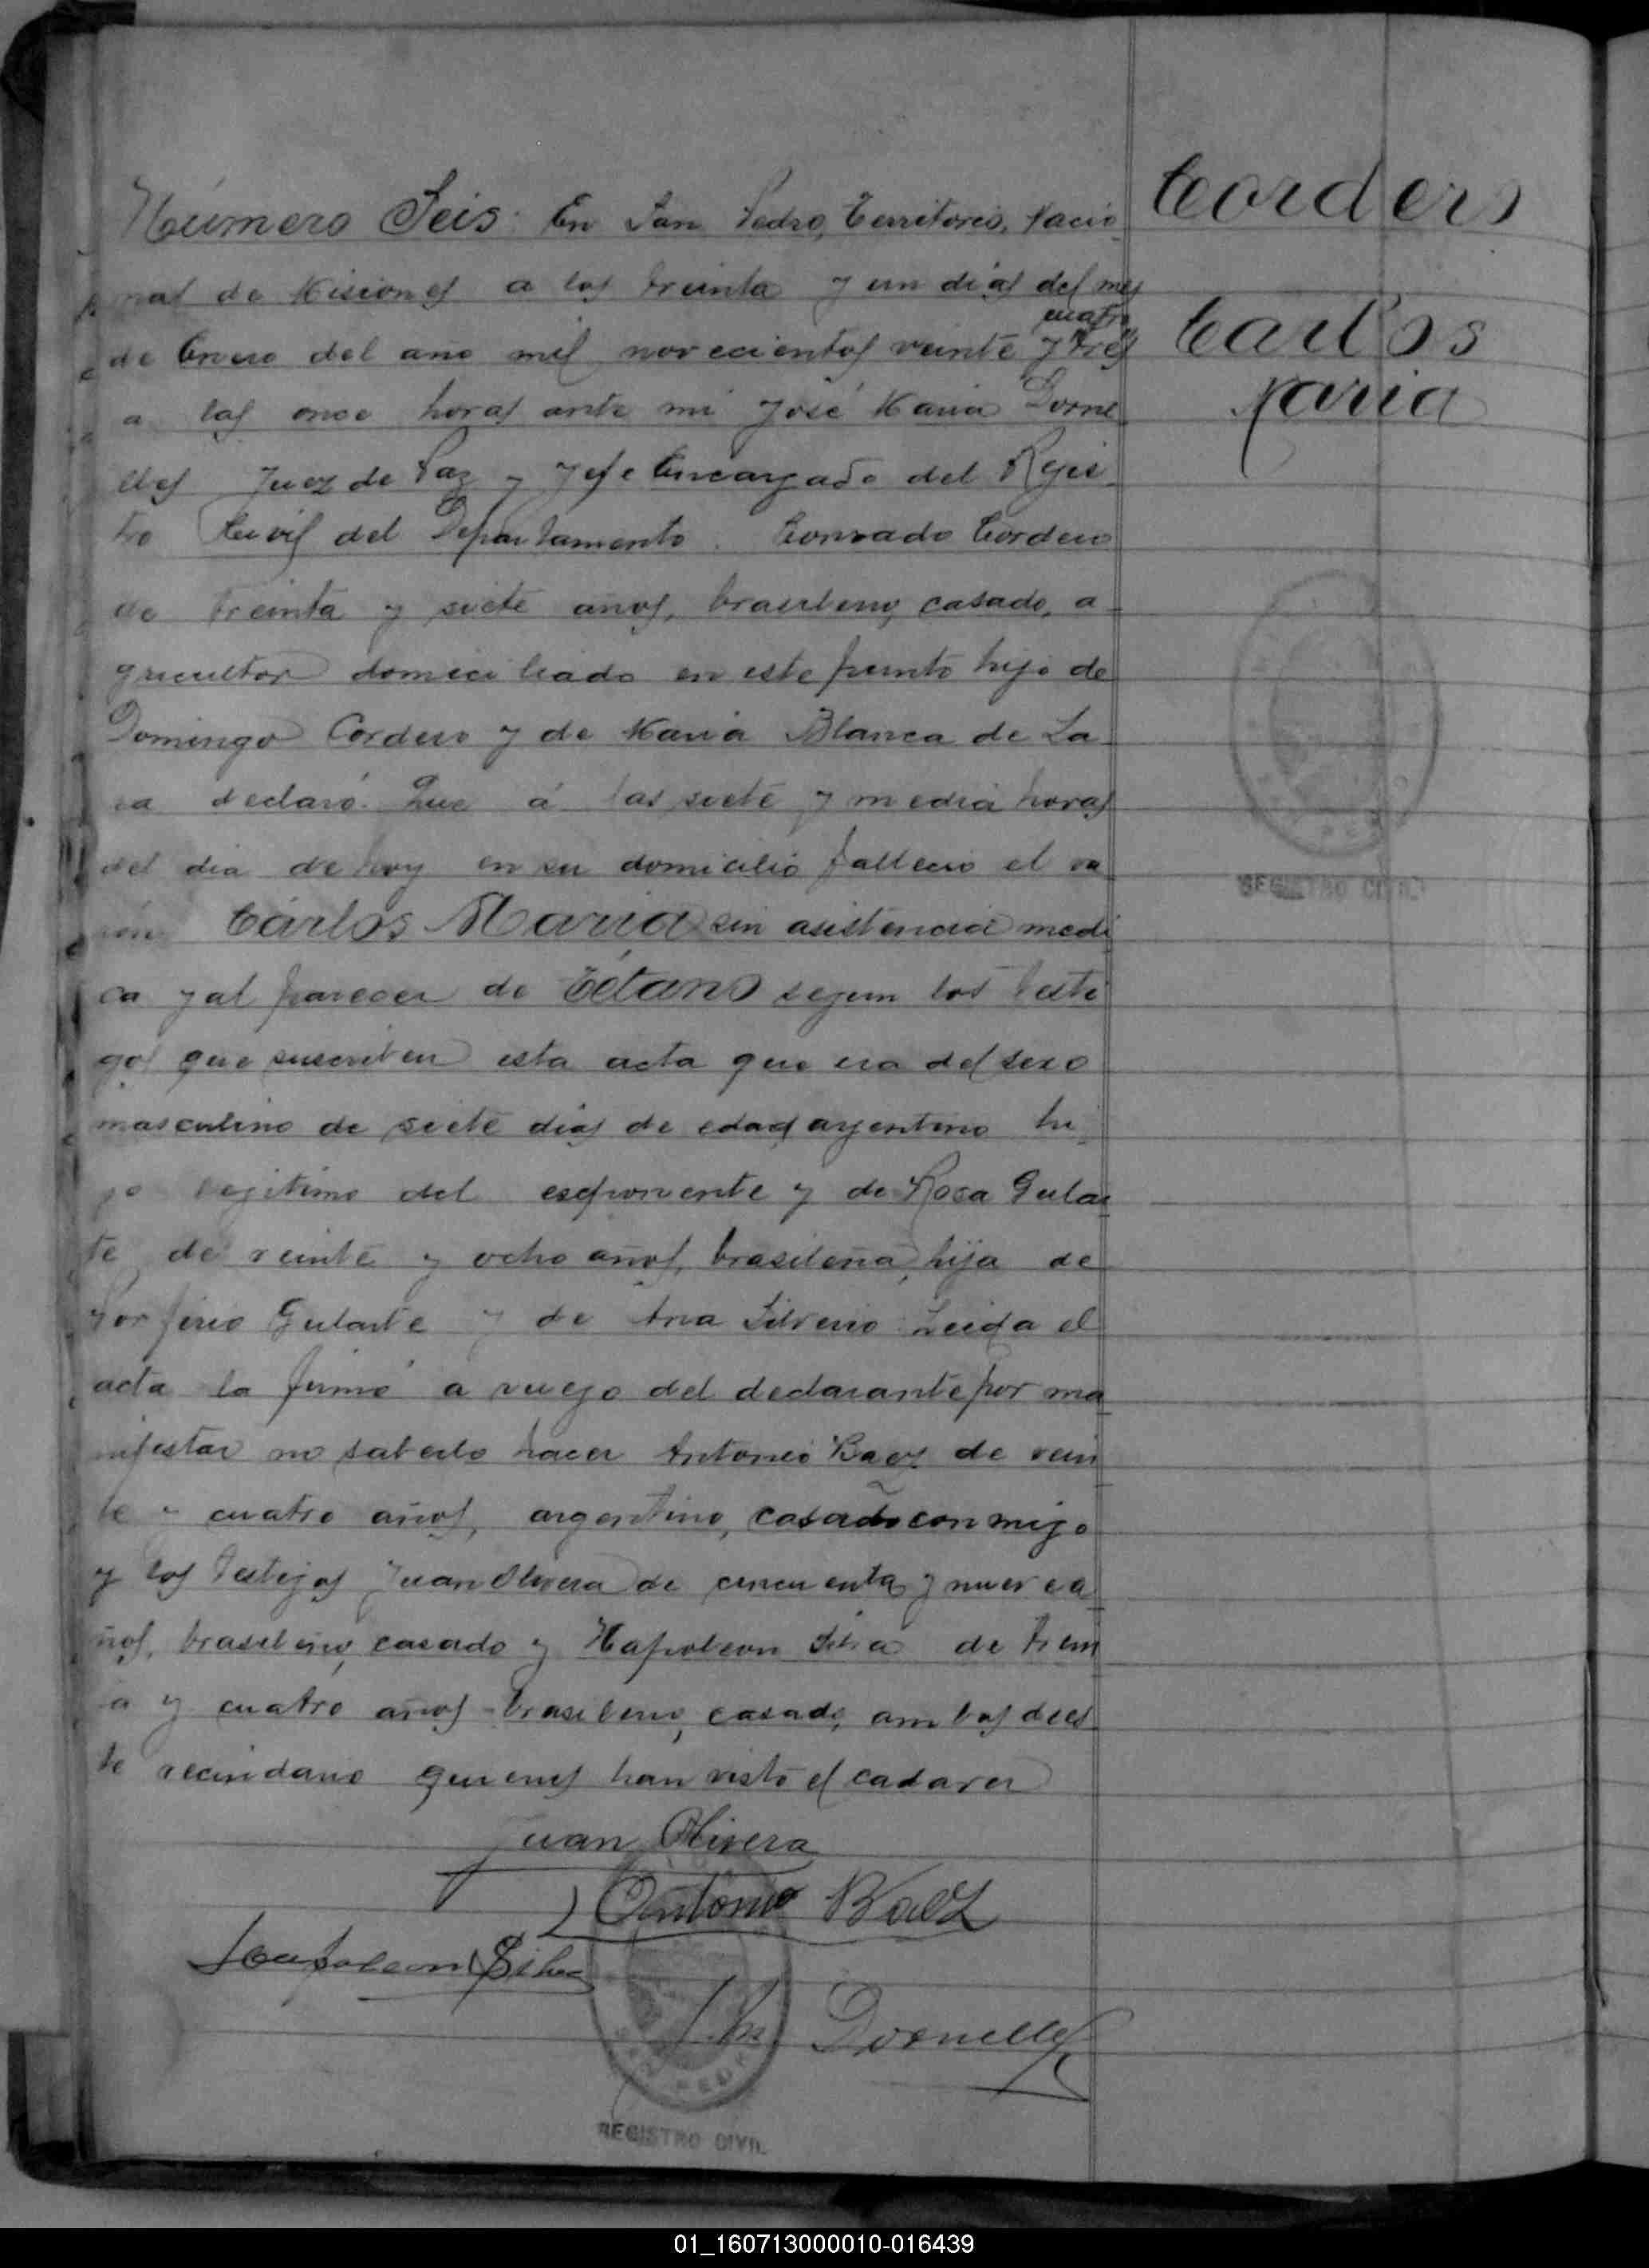 Número Seis: En San Pedro, Territorio, Nacio
nal de Misiones a los treinta y un dias del mes
cuatro
de Enero del año mil novecientos veinte y tres
a las once horas ante mi José Maria Dorne
lles Juez de Paz y Jefe Encargado del Rejis
tro Civil del Departamento. Conrado Cordero
de treinta y siete años, brasileno, casado, a
gricultor domiciliado en este punto hijo de
Domingo Cordero y de Maria Blanca de La
ra declaró. Que á las siete y media horas
del dia de hoy en su domicilio fallecio el va
rón Cárlos Maria sin asistencia medi
ca y al parecer de Tétano segun los testi
gos que suscriben esta acta que era del sexo
masculino de siete dias de edad argentino hi
jo legitimo del esponente y de Rosa Gular
te de veinte y ocho años, brasileña, hija de
Porfirio Gularte y de Ana Silverio. Leida el
acta la firmó a ruego del declarante por ma
nifestar no saberlo hacer Antonio Baez de vein
te y cuatro años, argentino, casado conmigo
y los testigos Juan Olivera de cincuenta y nueve a
ños, brasileño, casado y Napoleon Silva de trein
ta y cuatro años brasileno, casado, ambos dees
te vecindario quienes han visto el cadaver
Juan Olivera
Antonio Baez
Napoleon Silva
J. M. Dornelles
REGISTRO CIVIL
Cordero
Carlos
Maria
REGISTRO CIVIL
01_160713000010-016439